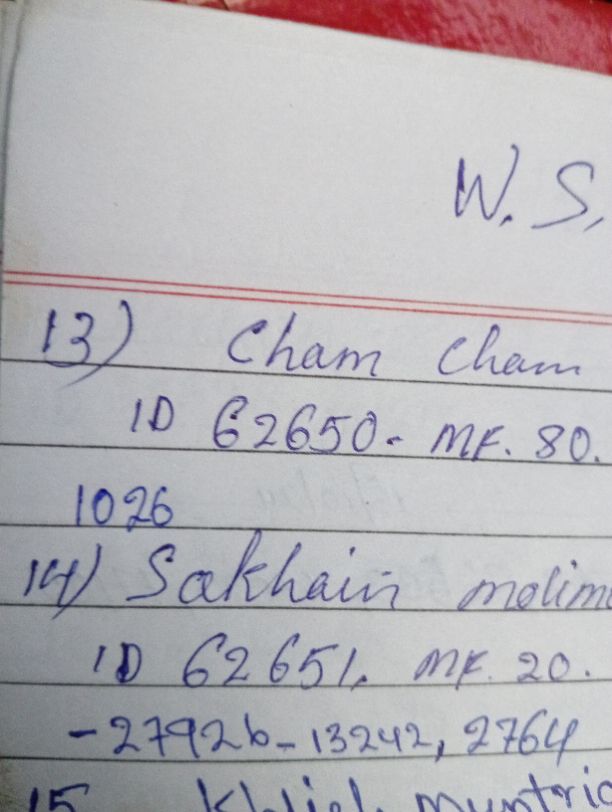 W. S,
13) Cham Cham
ID 62650. MF. 80.
1026
14) Sakhain molim
ID 62651, MF. 20.
-27926-13242, 2764
15